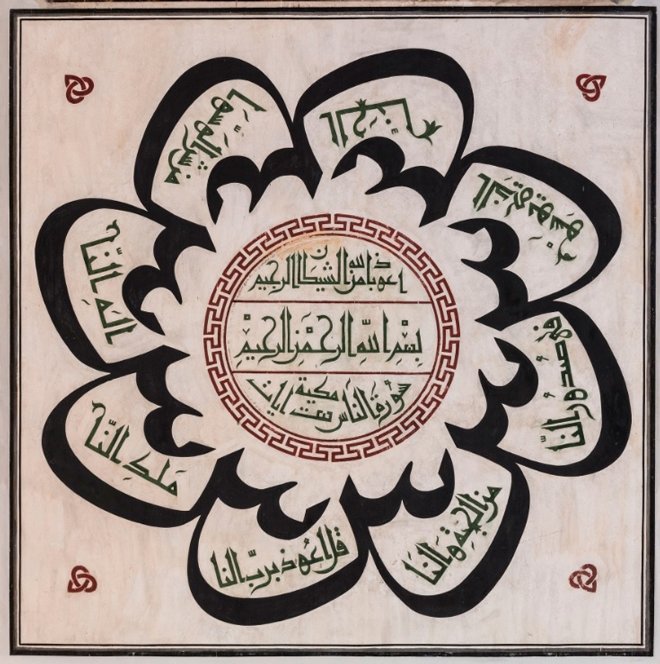 اعوذ بالله من الشيطان الرجيم
بِسْمِ اللهِ الرحمٰن الرحيمِ
سورة الناس مكية ست ايات
قل اعوذ بربّ الناس
ملك النّاس
اله النّاس
من شر الوسواس
الخنّاس
الذي يوسوس
في صدور النّاس
من الجنة والناس